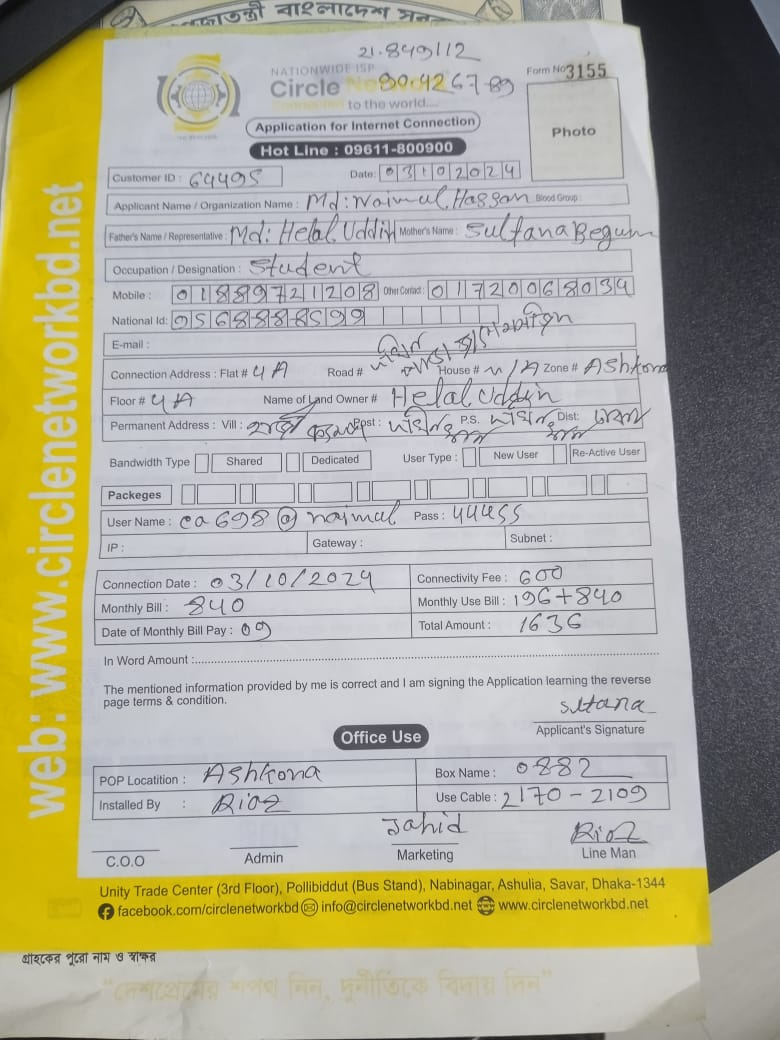 21.849112
NATIONWIDE ISP
Circle
90.426789
to the world....
Form No 3155
Application for Internet Connection
Hot Line : 09611-800900
Photo
Customer ID : 64495
Date: 03102024
Applicant Name / Organization Name : Md: Naimul Hassan Blood Group :
Father's Name / Representative : Md: Helal Uddin Mother's Name : Sultana Begum
Occupation / Designation : Student
Mobile : 01889721208 Other Contact : 01720068034
National Id: 0568888599
E-mail :
Connection Address : Flat # 4A Road # House # Zone # Ashkona
Floor # 4A Name of Land Owner # Helal Uddin
Permanent Address : Vill : Post : P.S. Dist: ঢাকা
Bandwidth Type Shared Dedicated User Type : New User Re-Active User
Packeges
User Name : ca698@naimul Pass : 44455
IP : Gateway : Subnet :
Connection Date : 03/10/2024 Connectivity Fee : 600
Monthly Bill : 840 Monthly Use Bill : 196+840
Date of Monthly Bill Pay : 09 Total Amount : 1636
In Word Amount :
The mentioned information provided by me is correct and I am signing the Application learning the reverse
page terms & condition.
Sltana
Applicant's Signature
Office Use
POP Locatition : Ashkona Box Name : 0882
Installed By : Rioz Use Cable : 2170-2109
Jahid Rioz
C.O.O Admin Marketing Line Man
Unity Trade Center (3rd Floor), Pollibiddut (Bus Stand), Nabinagar, Ashulia, Savar, Dhaka-1344
facebook.com/circlenetworkbd info@circlenetworkbd.net www.circlenetworkbd.net
web: www.circlenetworkbd.net
গ্রাহকের পুরো নাম ও স্বাক্ষর
“দেশপ্রেমের শপথ নিন, দুর্নীতিকে বিদায় দিন”